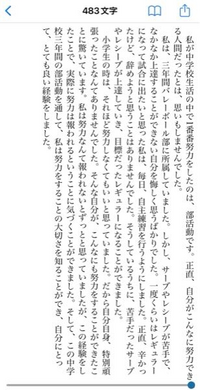 483文字
私が中学校生活の中で一番番努力をしたのは、部活動です。正直、自分がこんなに努力でき
る人間だったとは、思いもしませんでした。
私は、三年間バレーボール部に所属していました。しかし、サーブやレシーブが苦手で、
なかなか上達することができない自分を悔しく思うばかりでした。一度くらいはレギュラー
になって試合に出たいと思った私は、毎日、自主練習を行うようにしました。正直、辛かっ
たけど、辞めようと思うことはありませんでした。そうしているうちに、苦手だったサーブ
やレシーブが上達していき、目標だったレギュラーになることができました。
小学生の時は、それほど努力しなくてもいいと思っていました。だから自分自身、特別頑
張ったことなんてありませんでした。そんな自分が、こんなにも努力をすることができたこ
とに驚いています。私は努力なんて報われないとずっと思っていましたが、この経験をし
て、実際に努力は報われるということに気づくことができました。そして、この中学
校三年間の部活動を通して、私は努力をすることの大切さを知ることができ、自分にとっ
て、とても良い経験をしました。